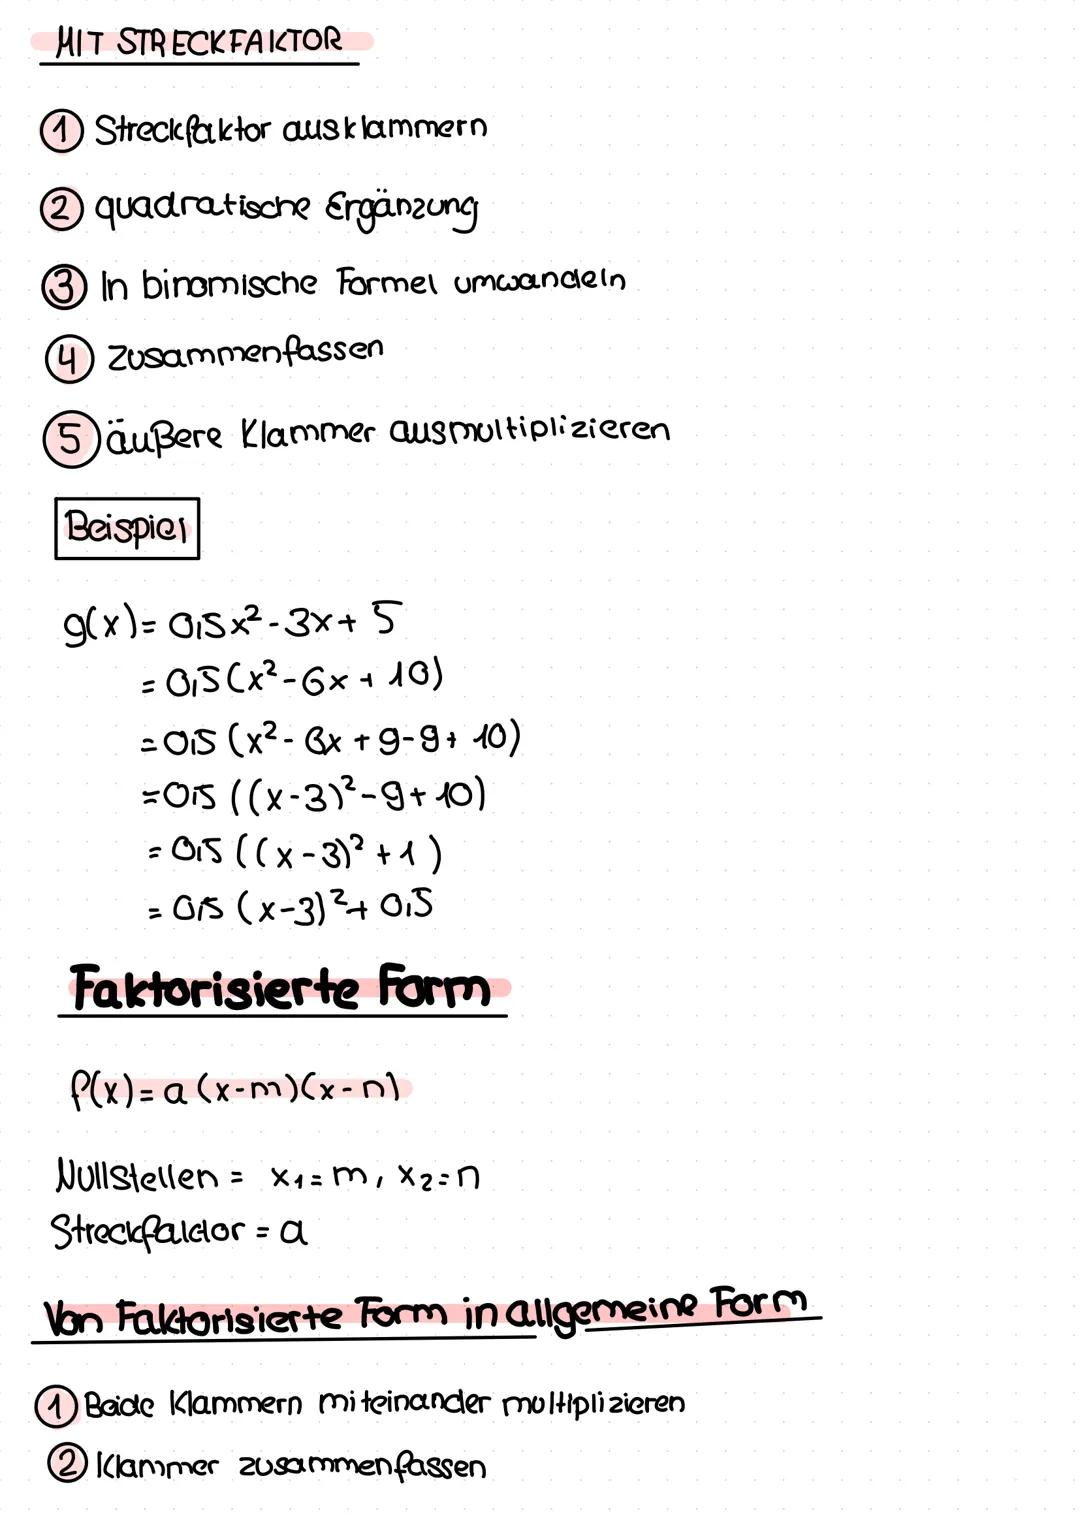 MIT STRECKFAKTOR
1 Streckfaktor ausklammern
2 quadratische Ergänzung
3 In binomische Formel umwandeln
4 zusammenfassen
5 äußere Klammer ausmultiplizieren
Beispiel
g(x) = 0,5x² - 3x + 5
= 0,5 (x² - 6x + 10)
= 0,5 (x² - 6x + 9 - 9 + 10)
= 0,5 ((x - 3)² - 9 + 10)
= 0,5 ((x - 3)² + 1)
= 0,5 (x - 3)² + 0,5
Faktorisierte Form
f(x) = a (x - m)(x - n)
Nullstellen = x₁ = m, x₂ = n
Streckfaktor = a
Von Faktorisierte Form in allgemeine Form
1 Beide Klammern miteinander multiplizieren
2 Klammer zusammenfassen